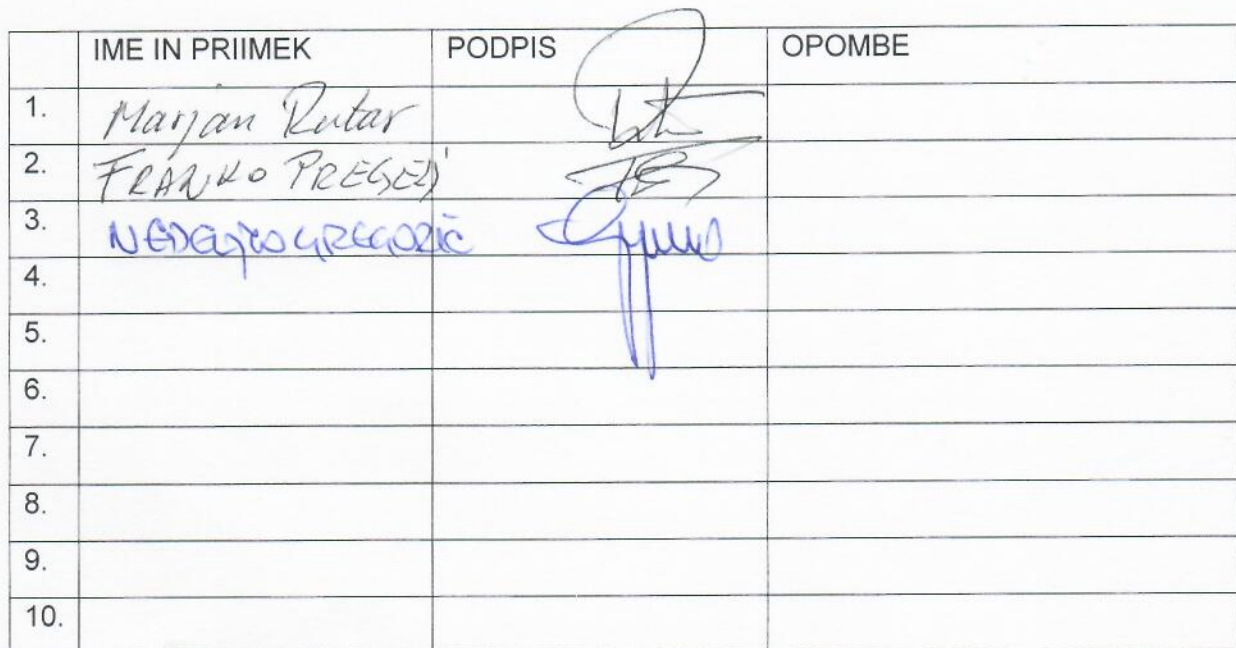 IME IN PRIIMEK PODPIS OPOMBE
1. Marjan Rutar
2. FRANKO PREGELJ
3. NEDELJKO GREGORIČ
4.
5.
6.
7.
8.
9.
10.